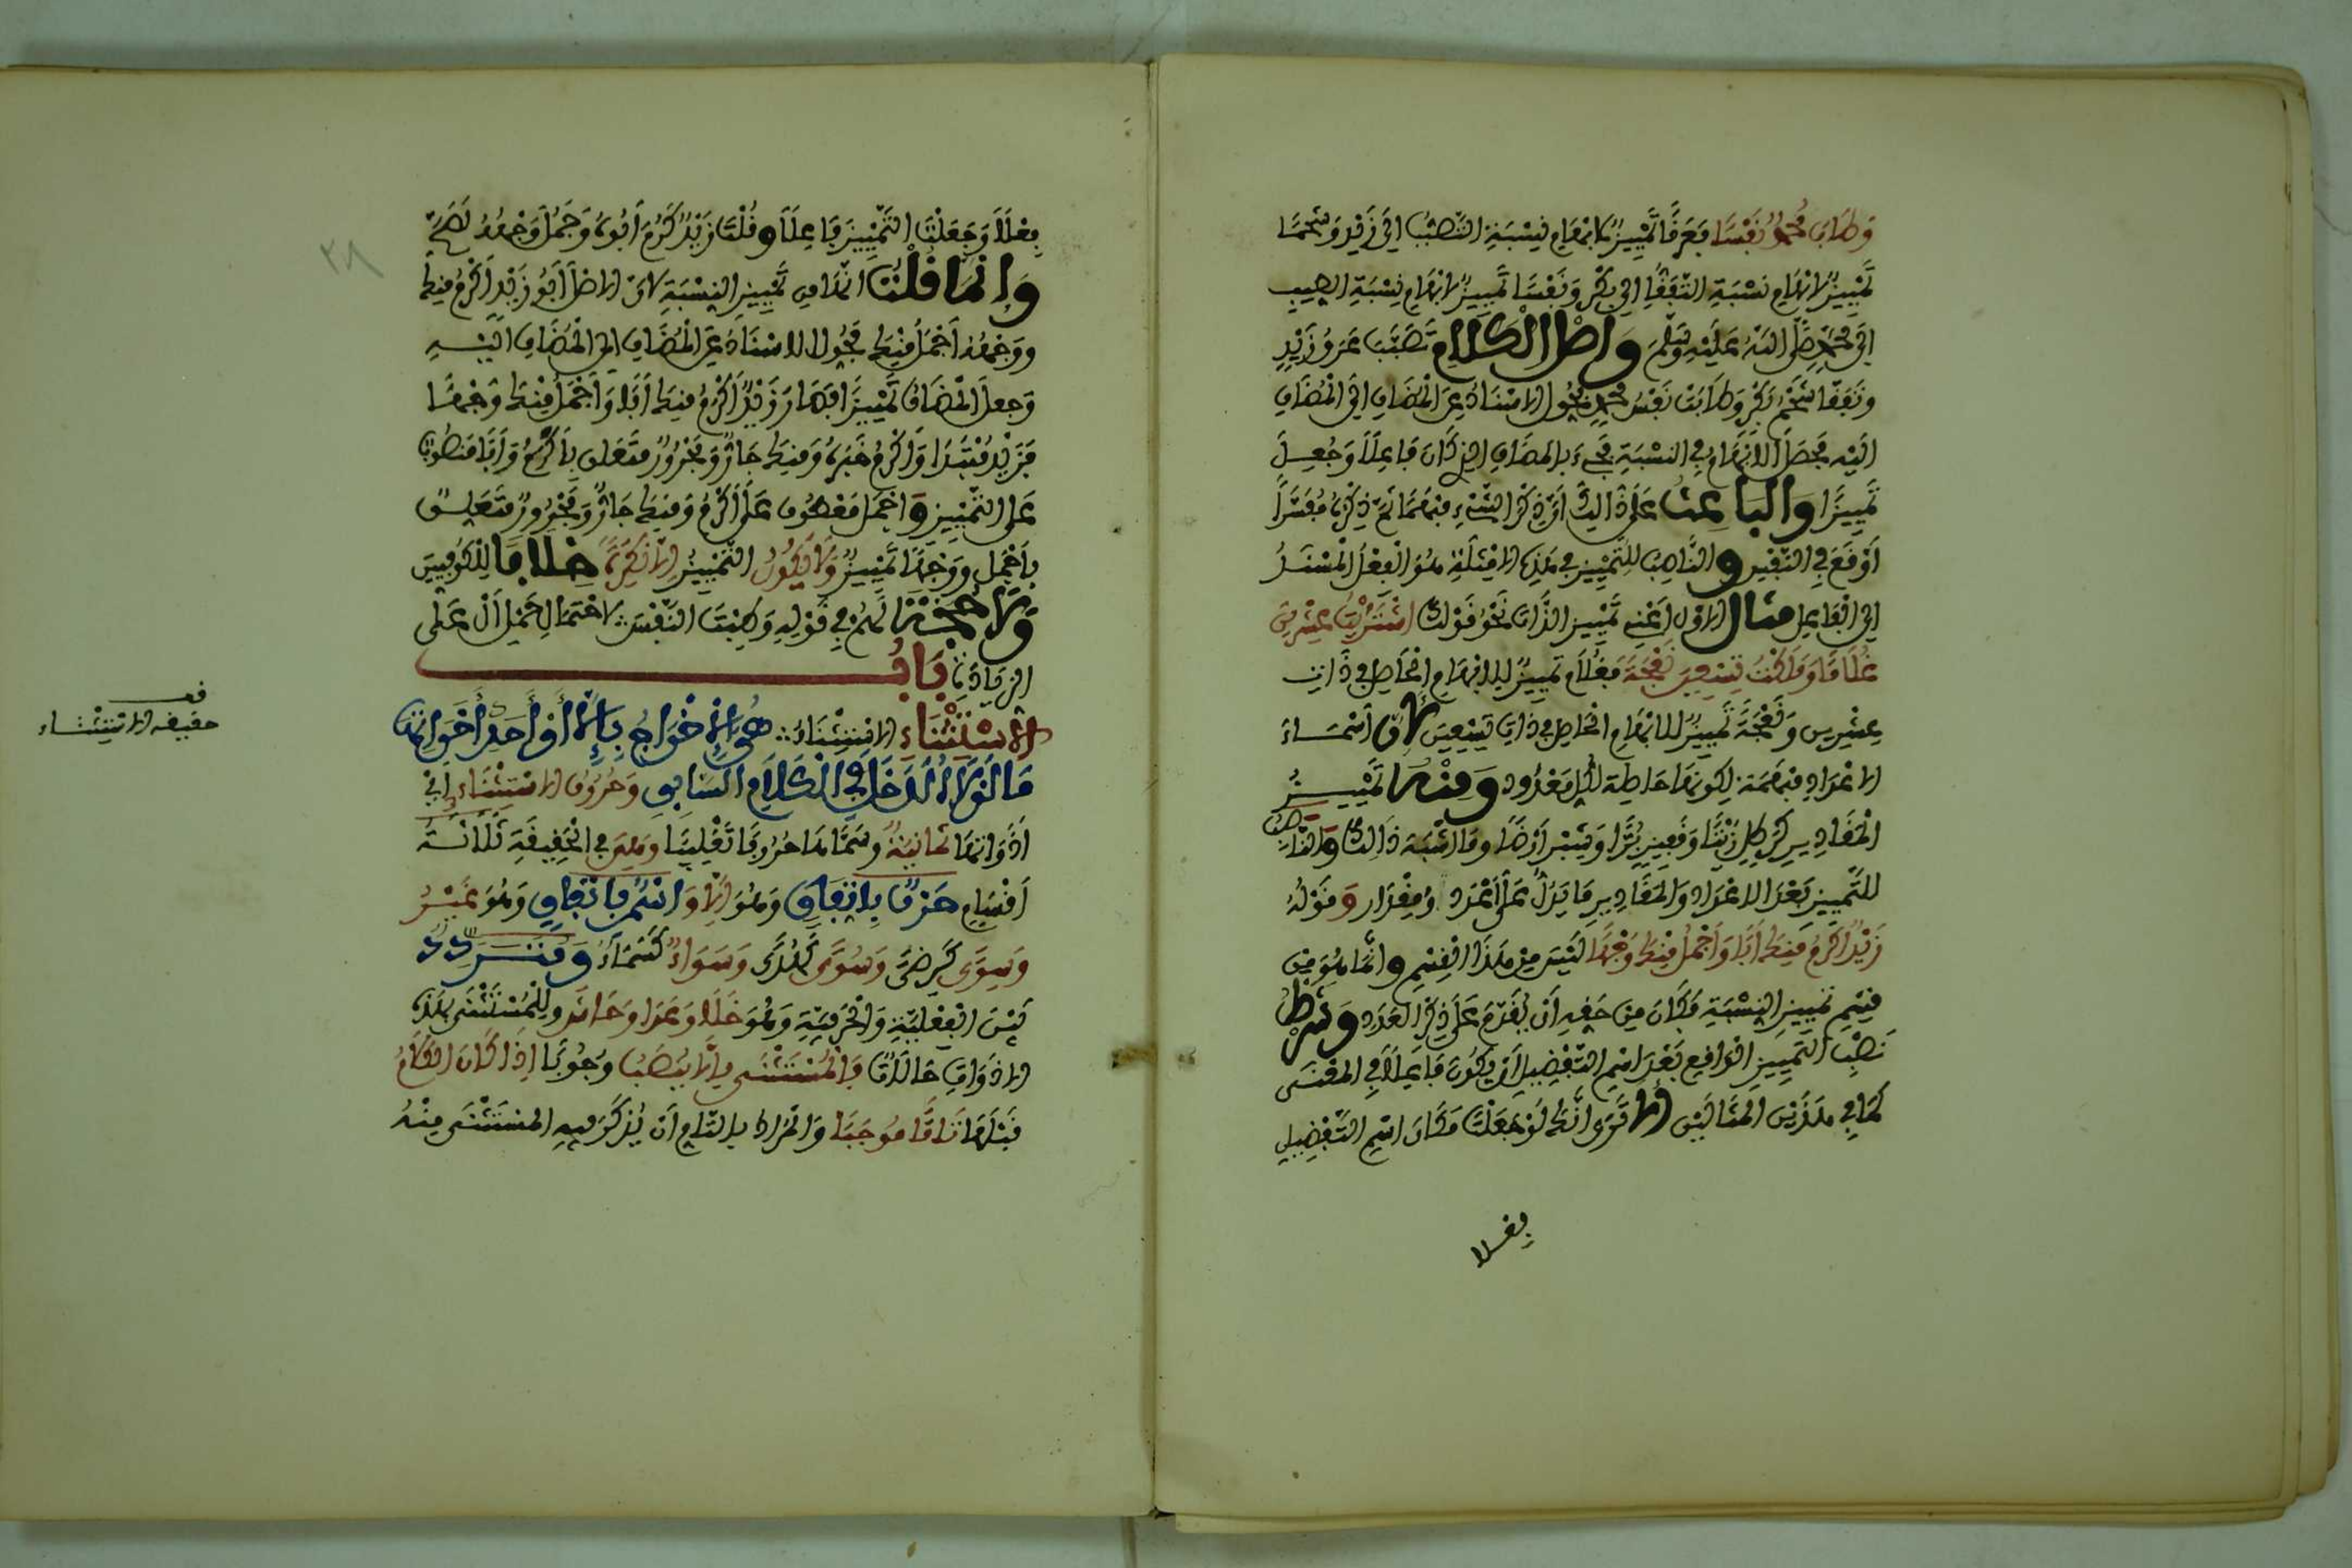 وَطَابَ مُحَمَّدٌ نَفْسًا فَعَرَقًا تَمْيِيزٌ لِابْهَامِ نِسْبَةِ التَّصَبُّبِ الَى زَيْدٍ وَشَحْمًا
تَمْيِيزٌ لِابْهَامِ نِسْبَةِ التَّفَقُّإِ الى بَكْرٍ وَنَفْسًا تَمْيِيزٌ لِابْهَامِ نِسْبَةِ الطيبِ
الَى مُحَمَّدٍ صَلَّى اللَّهُ عَلَيْهِ وَسَلَّمَ وَاصْلُ الْكَلَامِ تَصَبَّبَ عَرَقُ زَيْدٍ
وَتَفَقَّأَ شَحْمُ بَكْرٍ وَطَابَتْ نَفْسُ مُحَمَّدٍ فَحُوِّلَ الاسْنَادُ عَنِ الْمُضَافِ الَى الْمُضَافِ
الَيْهِ فَحَصَلَ الابْهَامُ فِي النِّسْبَةِ فَجِيءَ بِالْمُضَافِ الذِي كَانَ فَاعِلًا وَجُعِلَ
تَمْيِيزًا وَالْبَاعِثُ عَلَى ذَالِكَ أَنَّ ذِكْرَ الشَّيْءِ مُبْهَمًا ثُمَّ ذِكْرُهُ مُفَسَّرًا
أَوْقَعُ فِي النَّفْسِ وَالنَّاصِبُ لِلتَّمْيِيزِ فِي هَذِهِ الامْثِلَةِ هُوَ الْفِعْلُ الْمُسْنَدُ
الى الْفَاعِلِ مثَالُ الاوَّلِ اَعْنِي تَمْيِيزَ الذَّاتِ نَحْوُ قَوْلِكَ اشْتَرَيْتُ عِشْرِينَ
غُلَامًا وَمَلَكْتُ تِسْعِينَ نَعْجَةً فَغُلَامًا تَمْيِيزٌ لِلابْهَامِ الْحَاصِلِ فِي ذَاتِ
عِشْرِينَ وَنَعْجَةً تَمْيِيزٌ لِلابْهَامِ الْحَاصِلِ فِي ذَاتِ تِسْعِينَ لِأَنَّ أَسْمَاءَ
الاعْدَادِ مُبْهَمَة لِكَوْنِهَا صَالِحَة لِكُلِّ مَعْدُودٍ وَمِنْهُ تَمْيِيزُ
الْمَقَادِيرِ كَرِطْلٍ زَيْتًا وَقَفِيزٍ بُرًّا وَشِبْرٍ أَرْضًا وَمَا اشْبَهَ ذَالِكَ وَالنَّاصِبُ
لِلتَّمْيِيزِ بَعْدَ الاعْدَادِ وَالْمَقَادِيرِ مَا يَدُلُّ عَلَى عَدَدٍ وَمِقْدَارٍ وَقَوْلُهُ
زَيْدٌ أَكْرَمُ مِنْكَ أَبًا وَأَجْمَلُ مِنْكَ وَجْهًا لَيْسَ مِنْ هَذَا الْقِسْمِ وَانَّمَا هُوَ مِنْ
قِسْمِ تَمْيِيزِ النِّسْبَةِ فَكَانَ مِنْ حَقِّهِ أَنْ يُقَدَّمَ عَلَى ذِكْرِ الْعَدَدِ وَشَرْطُ
نَصْبِ التَّمْيِيزِ الْوَاقِعِ بَعْدَ اسْمِ التَّفْضِيلِ أَنْ يَكُونَ فَاعِلًا فِي الْمَعْنَى
كَمَا فِي هَذَيْنِ الْمِثَالَيْنِ أَلَا تَرَى أَنَّكَ لَوْ جَعَلْتَ مَكَانَ اسْمِ التَّفْضِيلِ
فعلا
فِعْلًا وَجَعَلْتَ التَّمْيِيزَ فَاعِلًا وَقُلْتَ زَيْدٌ كَرُمَ أَبُوهُ وَجَمُلَ وَجْهُهُ لَصَحَّ
وَإِنَّمَا قُلْنَا انَّهُ مِن تَمْيِيزِ النِّسْبَةِ لِانَّ الاصْلَ أَبُو زَيْدٍ أَكْرَمُ مِنْكَ
وَوَجْهُهُ أَجْمَلُ مِنْكَ فَحُوِّلَ الاسْنَادُ عَنِ الْمُضَافِ الى الْمُضَافِ الَيْهِ
وَجعلَ الْمُضَافُ تَمْيِيزًا فَصَارَ زَيْدٌ أَكْرَمُ مِنْكَ أَبًا وَأَجْمَلُ مِنْكَ وَجْهًا
فَزَيْدٌ مُبْتَدَا وَأَكْرَمُ خَبَرُهُ وَمِنْكَ جَارٌّ وَمَجْرُورٌ مُتَعَلِّقٌ بِأَكْرَمُ وَأَبًا مَنْصُوبٌ
عَلَى التَّمْيِيزِ وَأَجْمَلُ مَعْطُوفٌ عَلَى أَكْرَمُ وَمِنْكَ جَارٌّ وَمَجْرُورٌ مُتَعَلِّقٌ
بِأَجْمَلَ وَوَجْهًا تَمْيِيزٌ وَلَا يَكُونُ التَّمْيِيزُ إِلَّا نَكِرَةً خِلَافًا لِلْكُوفِيِّينَ
وَلَا حُجَّةَ لَهُمْ فِي قَوْلِهِ وَطِبْتَ النَّفْسَ لِاحْتِمَالِ حَمْلِ أَلْ عَلَى
الزِيَادَةِ بَابُ
الاسْتِثْنَاءِ الاسْتِثْنَاءُ هُوَ الإِخْرَاجُ بِإِلَّا أَوْ أَحَدِ أَخَوَاتِهَا
مَا لَوْلَاهُ لَدَخَلَ فِي الْكَلَامِ السَّابِقِ وَحُرُوفُ الاسْتِثْنَاءِ اَيْ
أَدَوَاتُهَا ثَمَانِيَةٌ وَسَمَّاهَا حُرُوفًا تَغْلِيبًا وَهِيَ فِي الْحَقِيقَةِ ثَلَاثَةُ
أَقْسَامٍ حَرْفٌ بِاتِّفَاقٍ وَهُوَ إِلَّا وَاسْمٌ بِاتِّفَاقٍ وَهُوَ غَيْرُ
وَسِوًى كَرِضًى وَسُوًى كَهُدًى وَسَوَاءٌ كَسَمَاءٌ وَمُتَرَدِّدٌ
بَيْنَ الْفِعْلِيَّةِ وَالْحَرْفِيَّةِ وَهُوَ خَلَا وَعَدَا وَحَاشَا وَلِلْمُسْتَثْنَى بِهَذِهِ
الادَوَاتِ حَالَاتٌ فَالْمُسْتَثْنَى بِإِلَّا يُنْصَبُ وُجُوبًا اِذَا كَانَ الْكَلَامُ
قَبْلَهَا تَامًّا مُوجَبًا وَالْمُرَادُ بِالتَّامِ أَنْ يُذْكَرَ فِيهِ الْمُسْتَثْنَى مِنْهُ
قف
حقيقة الاستثناء
٣٨